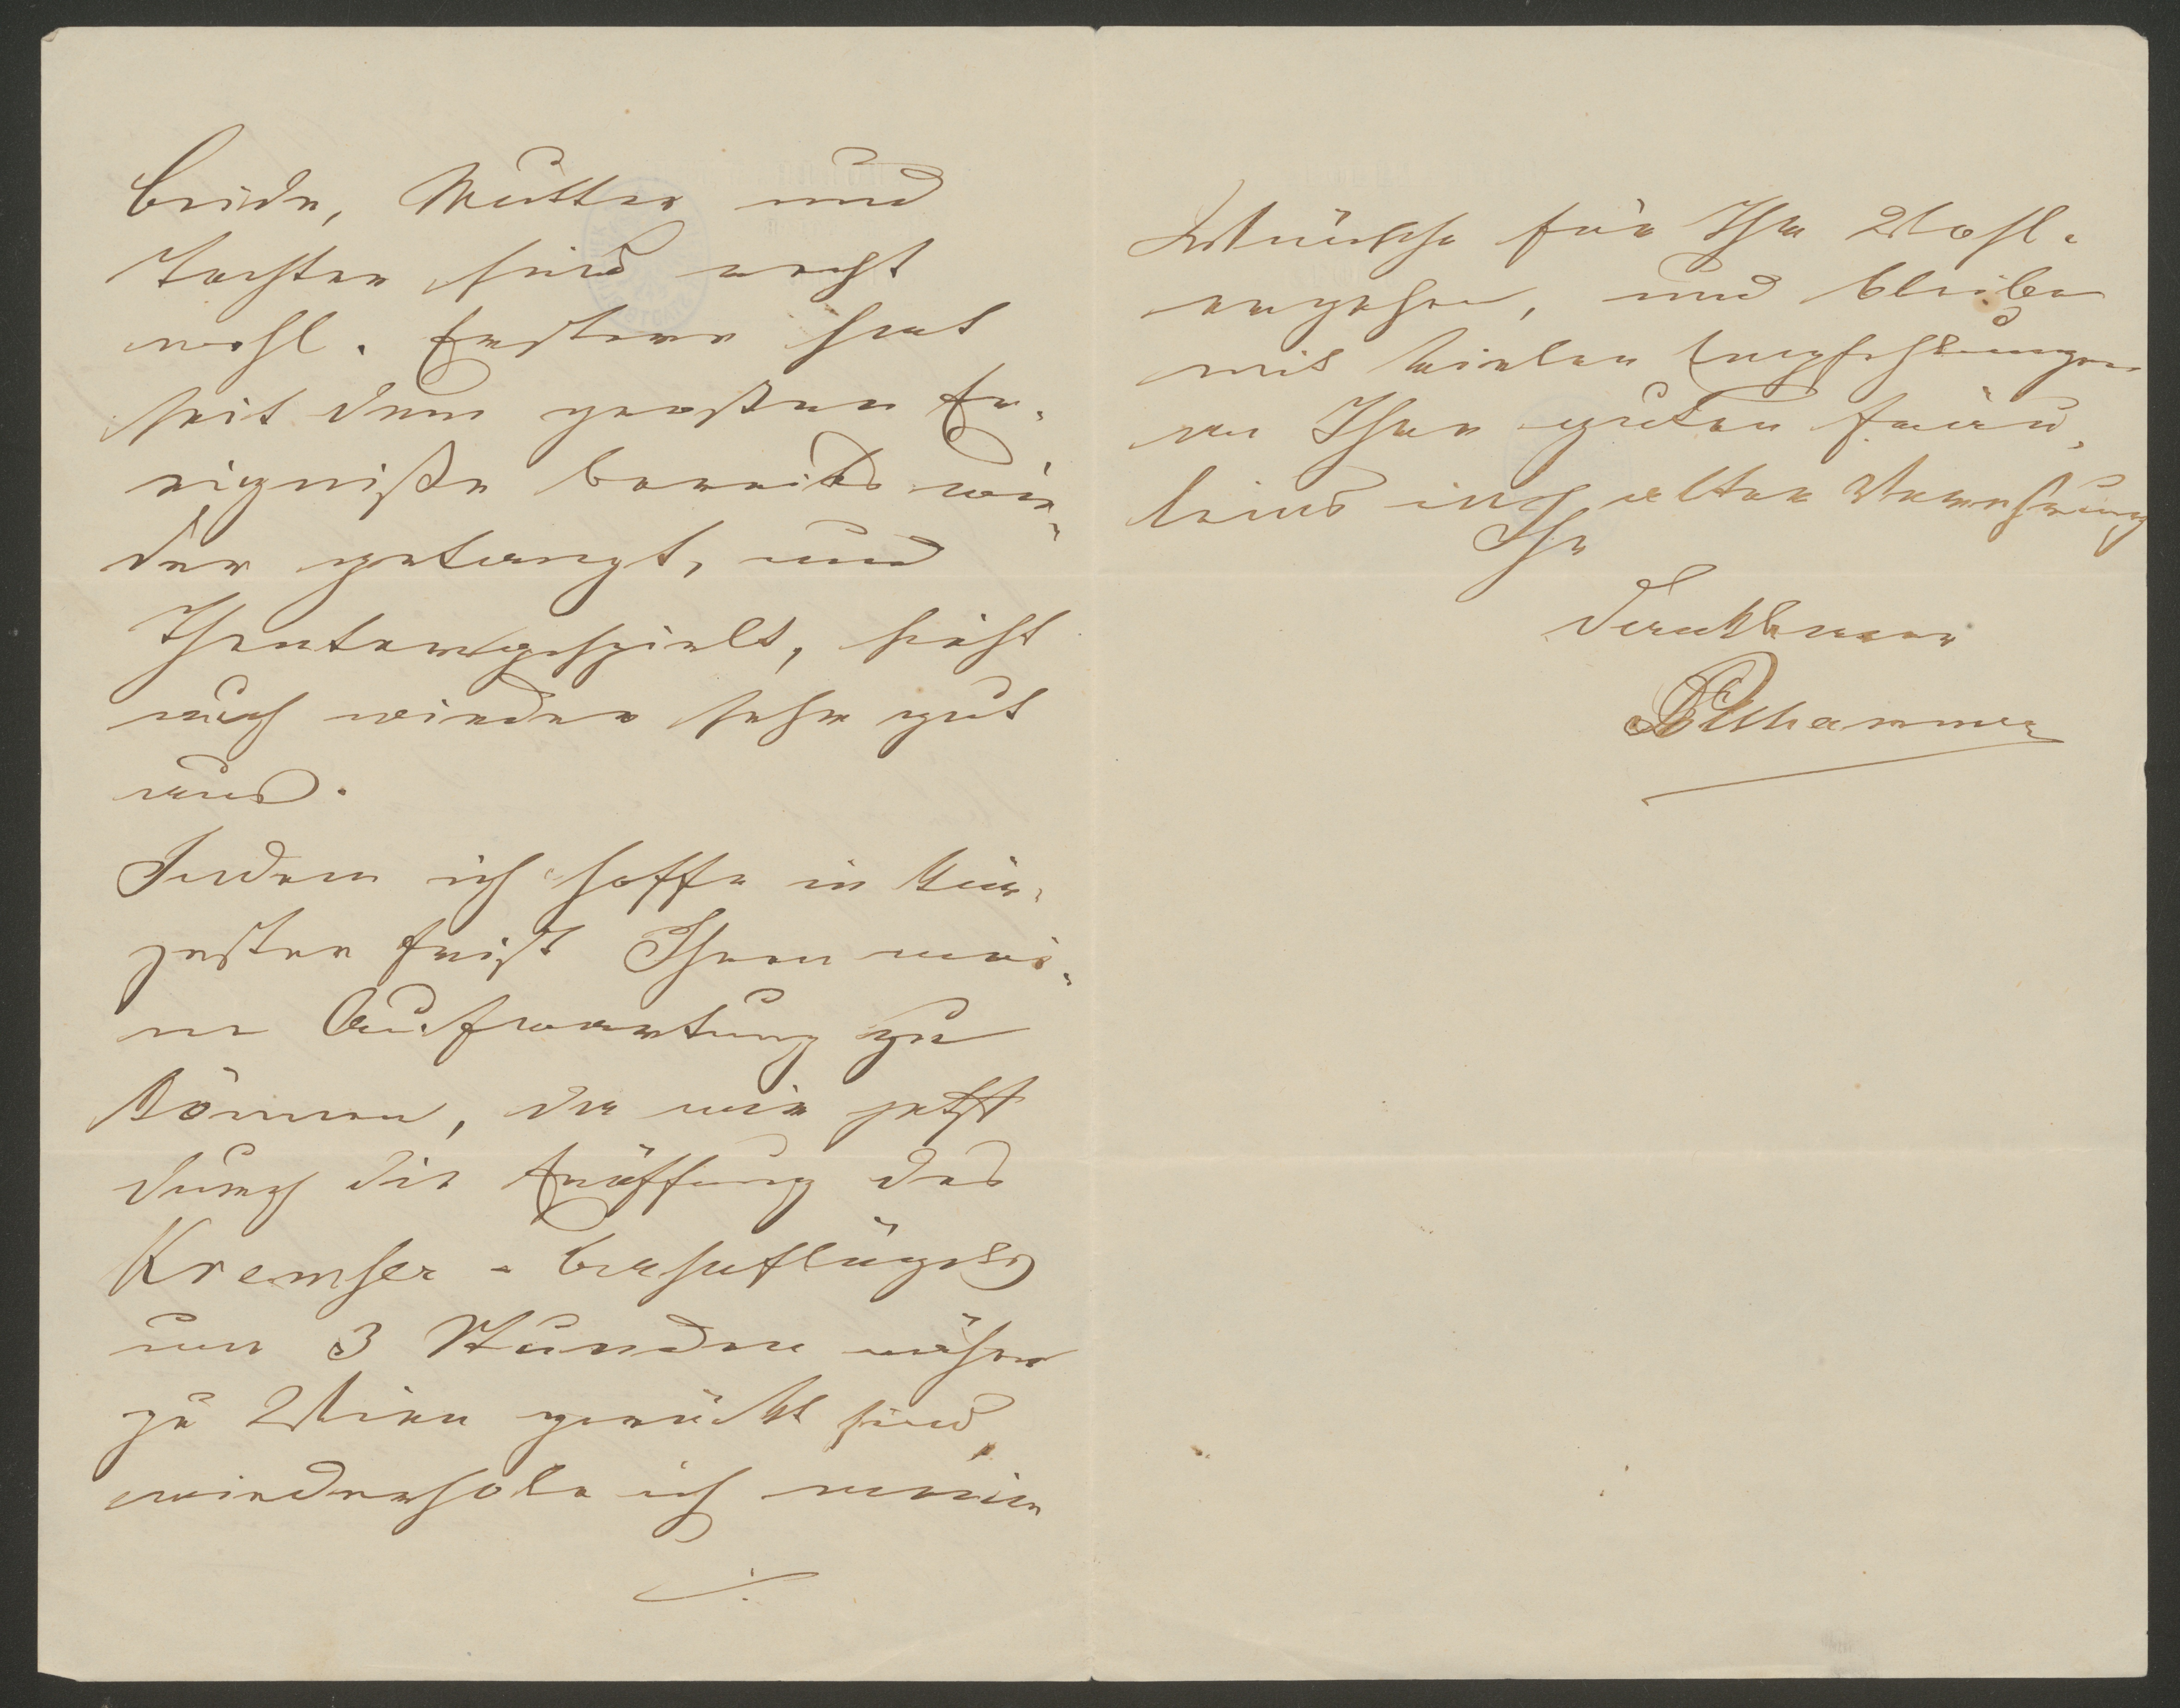 beide, Mutter und
Tochter sind recht
wohl. Erstere hat
seit dem großen Er-
eigniße bereits wie-
der getanzt, und
Theatergespielt, sieht
auch wieder sehr gut
aus.
Indem ich hoffe in kür-
zester Frist Ihnen mei-
ne Aufwartung zu
können, da wir jetzt
durch die Eröffnung des
Kremser-Bahnflügels
um 3 Stunden näher
zu Wien gerückt sind,
wiederhole ich meine
./.
Wünsche für Ihr Wohl-
ergehen, und bleibe
mit vielen Empfehlungen
an Ihre guten Fräu-
leins in alter Verehrung
Ihr
dankbarer